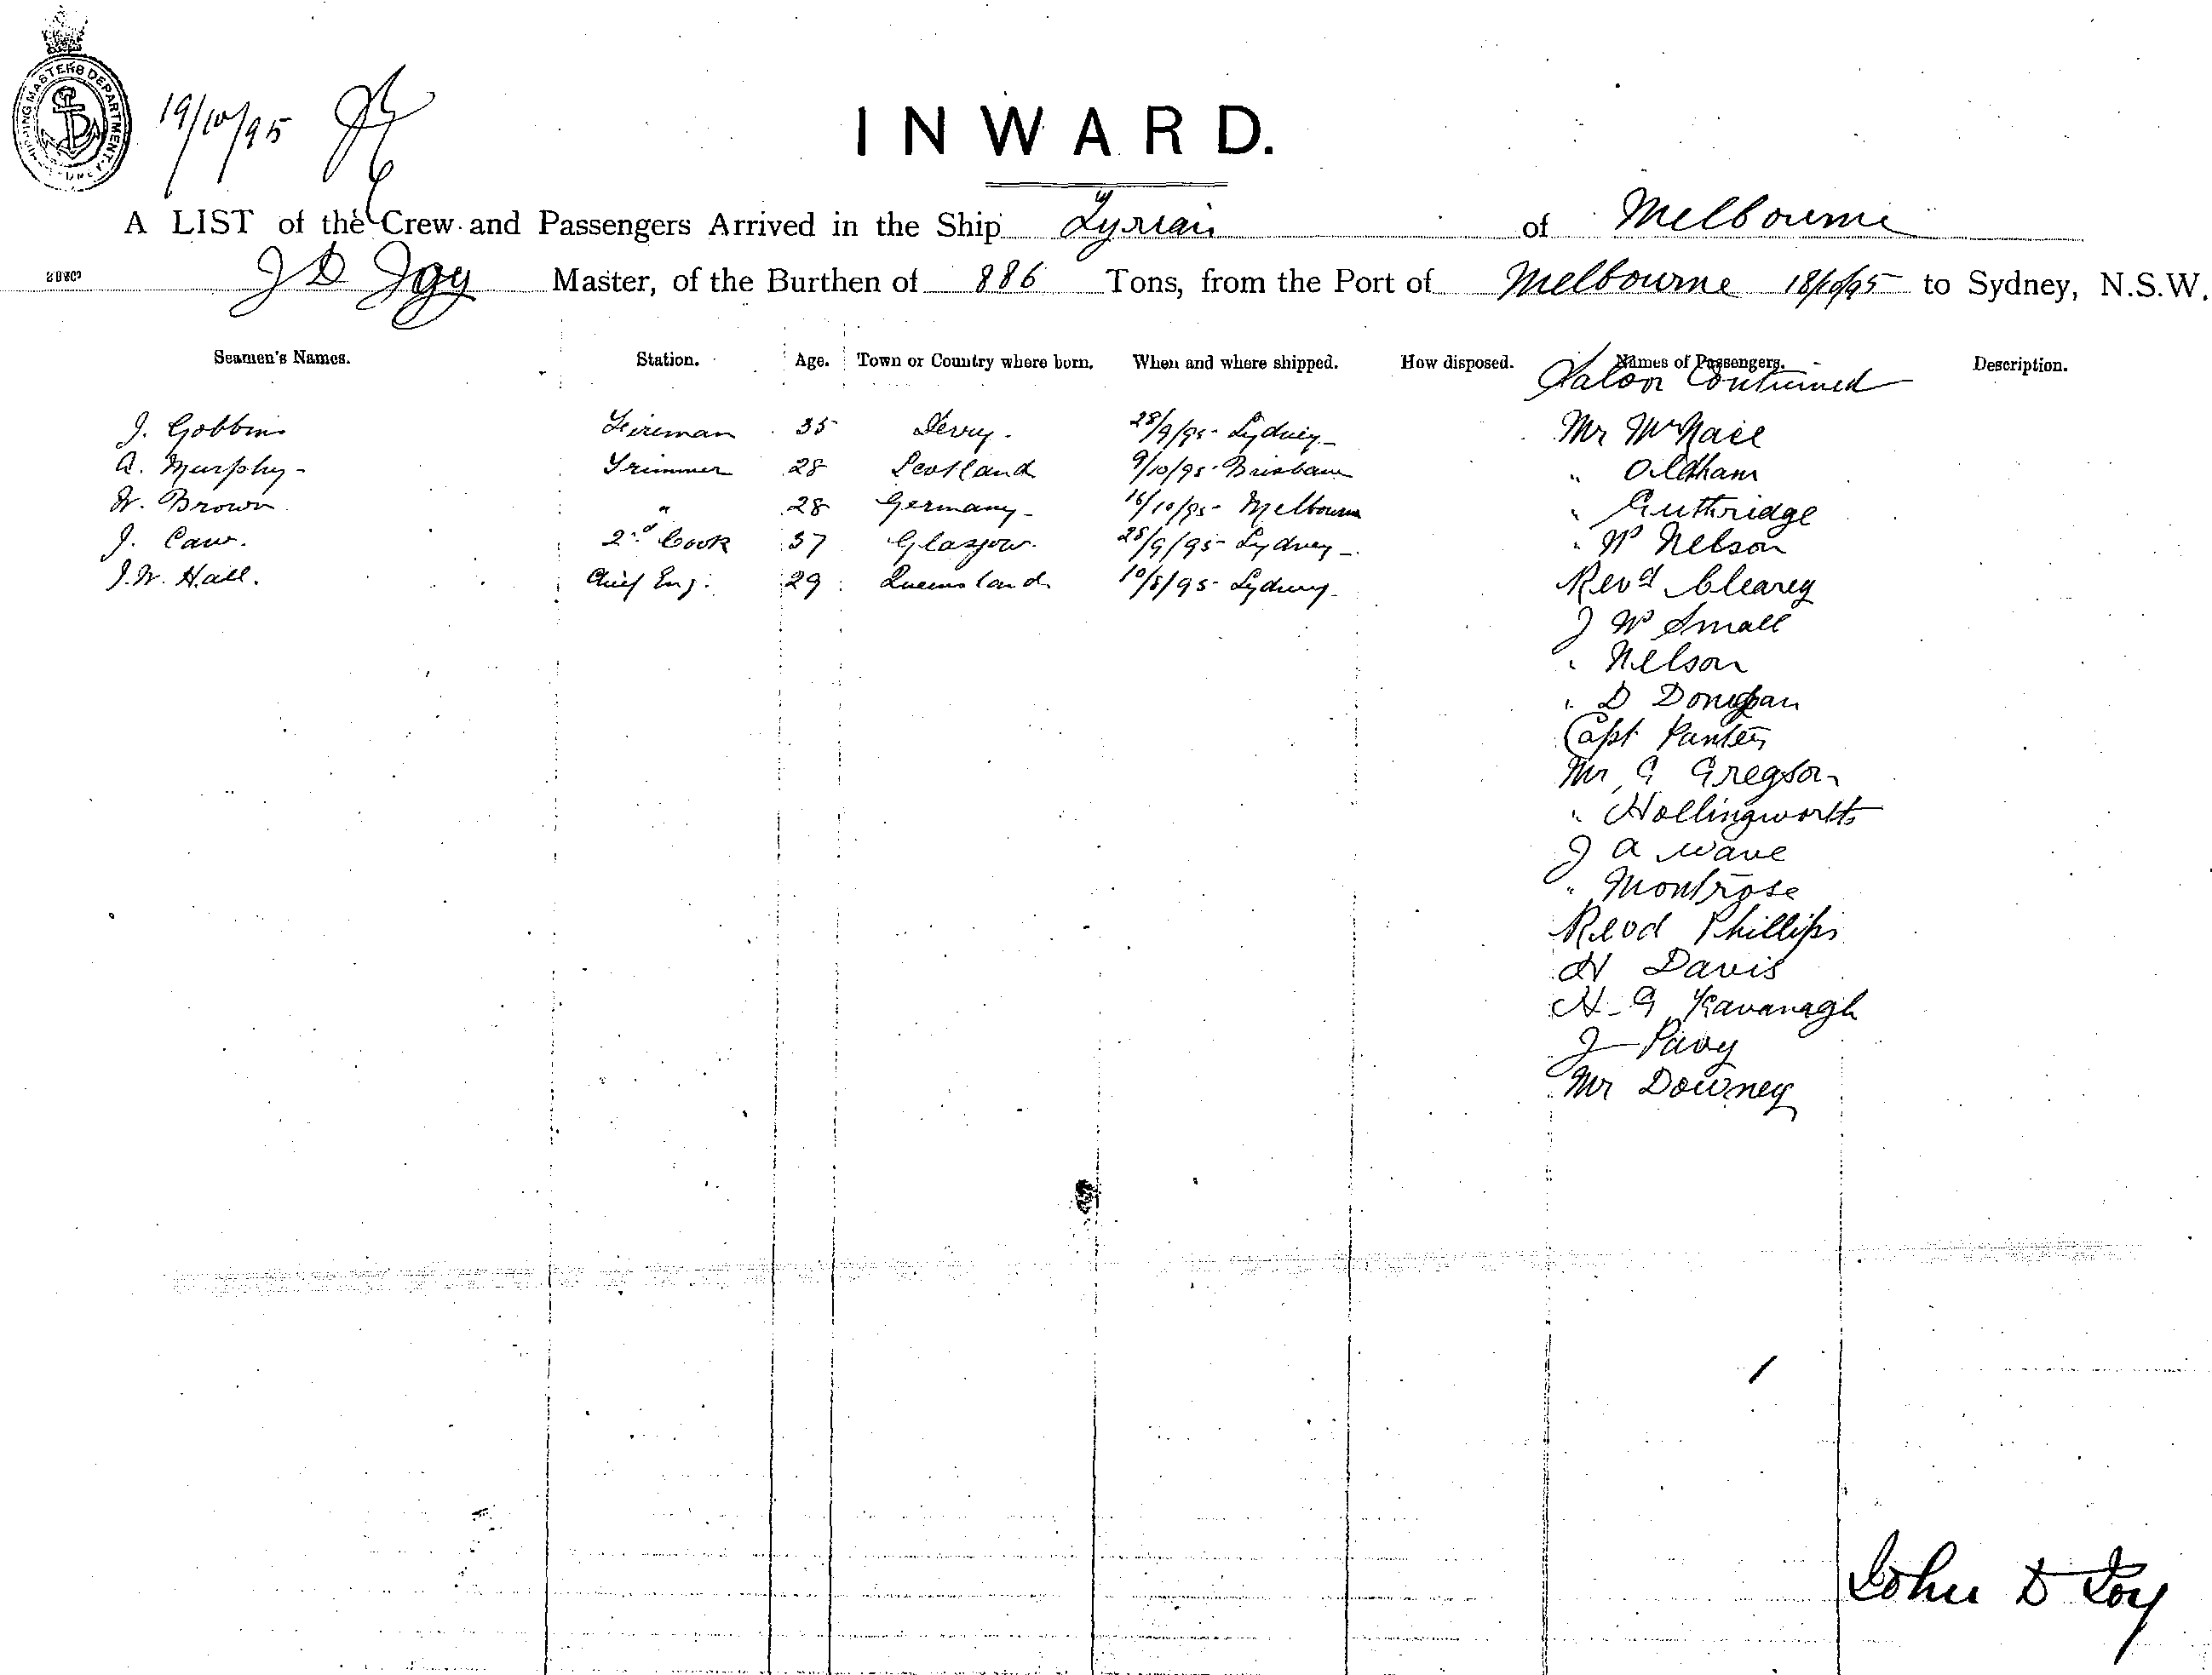 SHIPPING MASTERS DEPARTMENT SYDNEY
19/10/95
INWARD.
A LIST of the Crew and Passengers Arrived in the Ship Tyrian of Melbourne
J D Joy Master, of the Burthen of 886 Tons, from the Port of Melbourne 18/10/95 to Sydney, N.S.W.
Seamen's Names. Station. Age. Town or Country where born. When and where shipped. How disposed. Names of Passengers. Description.
Saloon Continued
J. Gobbins Fireman 35 Derry. 28/9/95 - Sydney - Mr McNall
A. Murphy - Trimmer 28 Scotland 9/10/95 - Brisbane " Oldham
W. Brown " 28 Germany - 16/10/95 - Melbourne " Guthridge
J. Caw. 2nd Cook 37 Glasgow. 28/9/95 - Sydney - " W Nelson
J. W. Hall. Chief Eng. 29 Queensland 10/8/95 - Sydney - Revd Cleary
J W Small
" Nelson
" D Donegan
Capt Panter
Mr G Gregson
" Hollingworth
J A Wave
" Montrose
Revd Phillips
H Davis
H G Kavanagh
J Pavy
Mr Downey
John D Joy